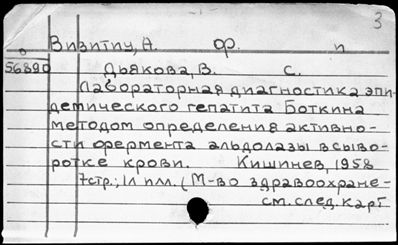 3
Визитиу, А. ф. п
56890 Дьякова, В. С.
Лабораторная диагностика эпи-
демического гепатита Боткина
методом определения активно-
сти фермента альдолазы в сыво-
ротке крови. Кишинев, 1958
7стр.; 1л илл. (М-во здравоохране-
см. след. карт